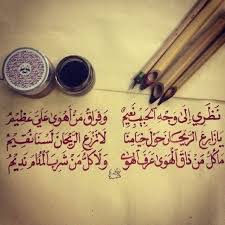 نَظَرِي إِلَى وَجْهِ الْحَبِيبِ نَعِيمٌ وَفِرَاقُ مَنْ أَهْوَى عَلَيَّ عَظِيمٌ
يَا زَارِعَ الرَّيْحَانِ حَوْلَ خِيَامِنَا لَا تَزْرَعِ الرَّيْحَانَ لَسْنَا نُقِيمُ
مَا كُلُّ مَنْ ذَاقَ الْهَوَى عَرَفَ الْهَوَى وَلَا كُلُّ مَنْ شَرِبَ الْمُدَامَ نَدِيمُ